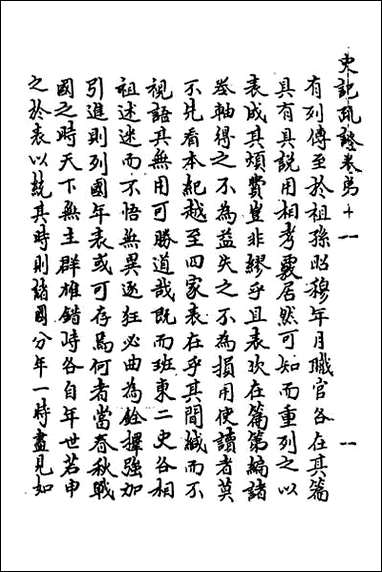 史記疏證卷第十一
有列傳至於祖孫昭穆年月職官各在其篇
具有其說用相考覈居然可知而重列之以
表成其煩費豈非繆乎且表次在篇第編諸
卷軸得之不為益失之不為損用使讀者莫
不先看本紀越至四家表在乎其間緘而不
視語其無用可勝道哉既而班東二史各相
祖述迷而不悟無異逐狂必曲為銓擇強加
引進則列國年表或可存焉何者當春秋戰
國之時天下無主群雄錯峙各自年世若申
之於表以統其時則諸國分年一時盡見如
一